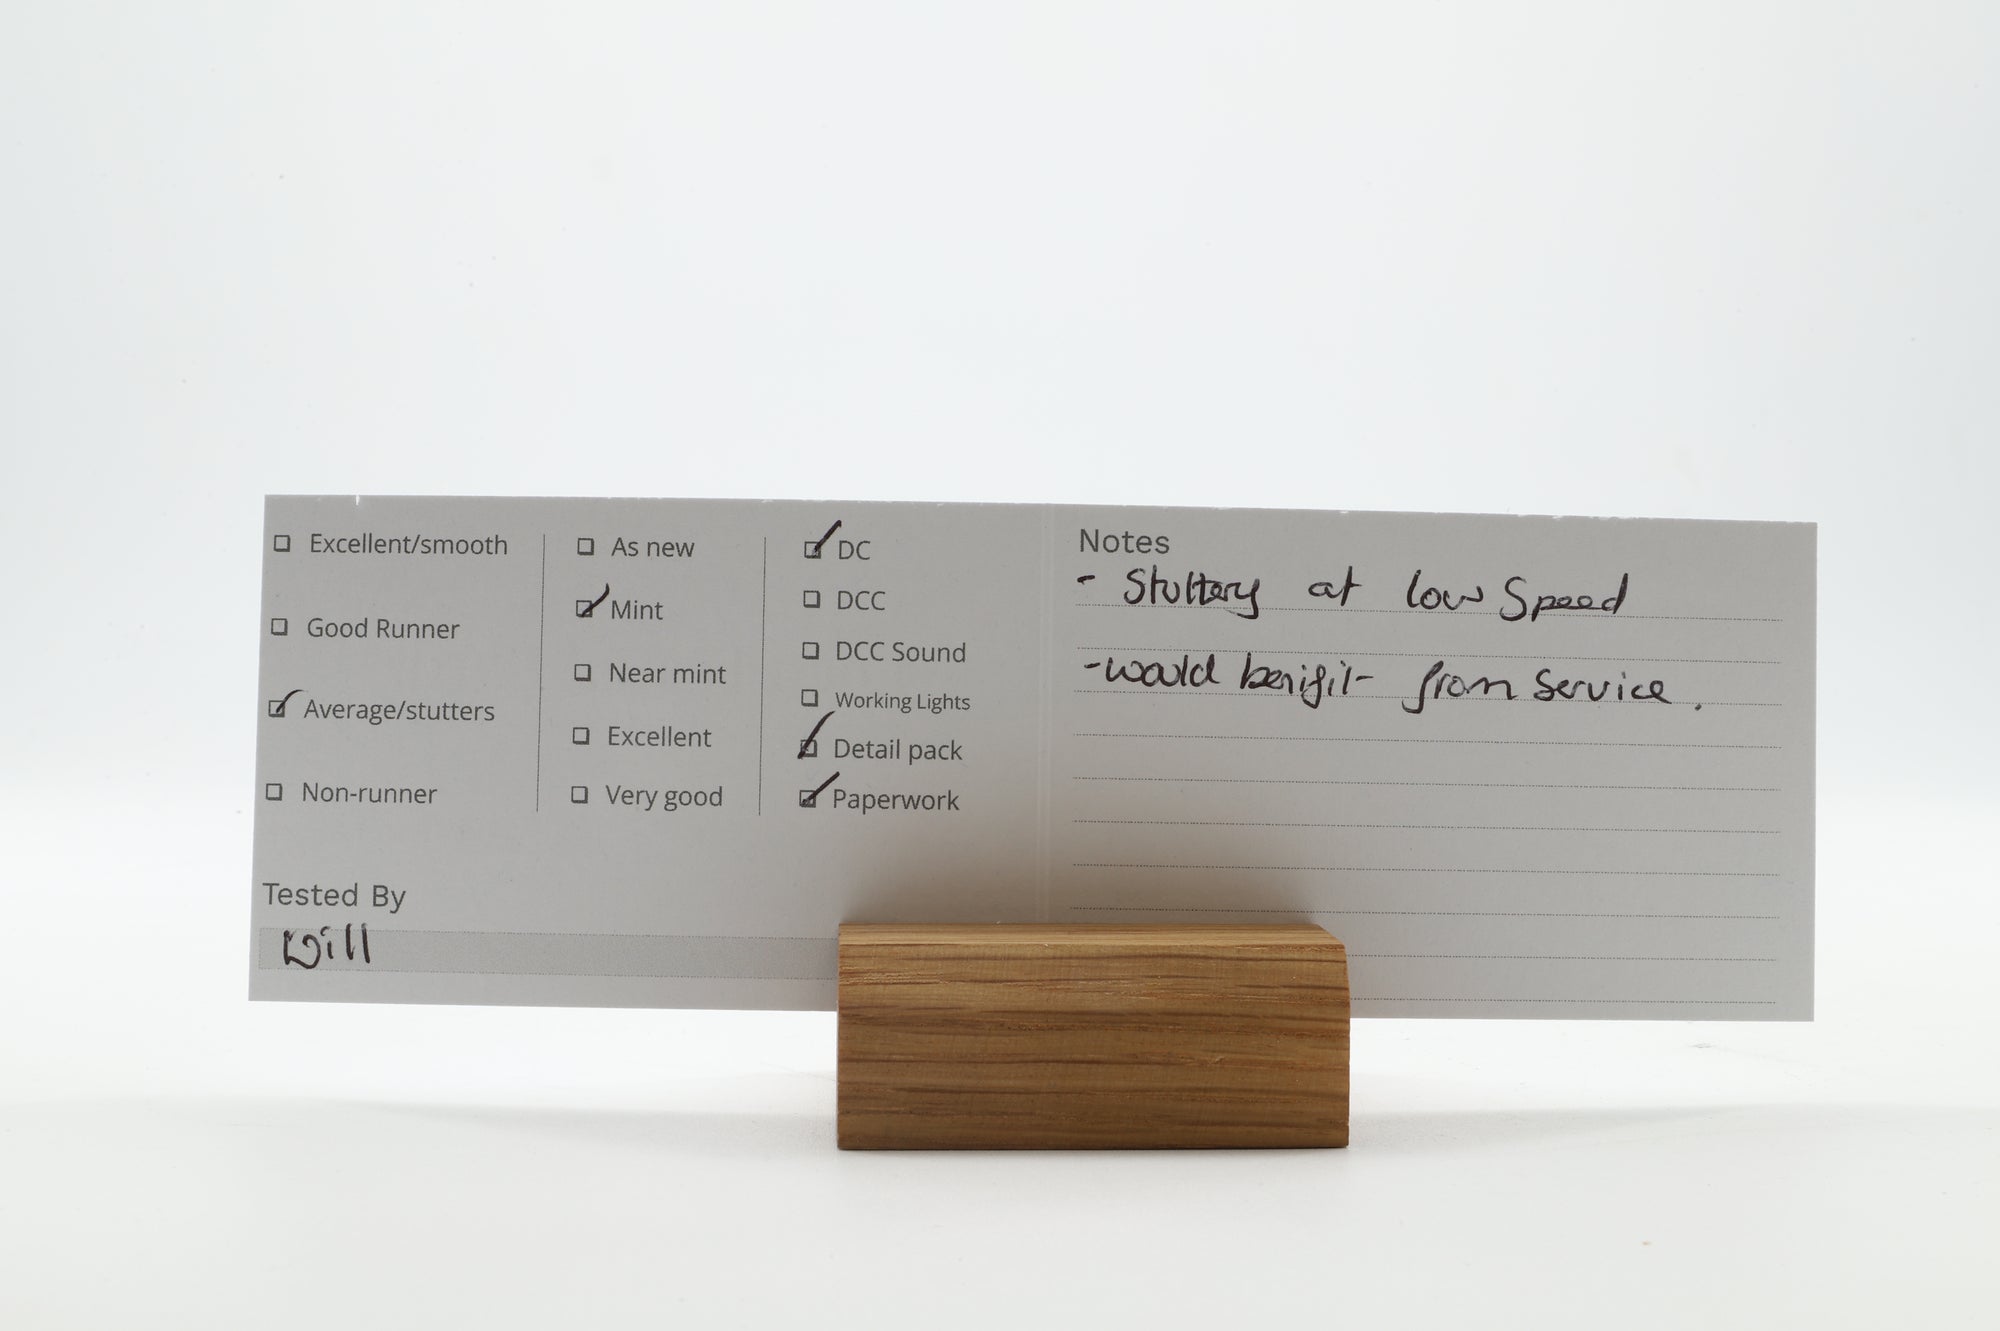 Excellent/smooth
Good Runner
Average/stutters
Non-runner
As new
Mint
Near mint
Excellent
Very good
DC
DCC
DCC Sound
Working Lights
Detail pack
Paperwork
Tested By
Will
Notes
- Stuttery at low Speed
- would benifit from service.